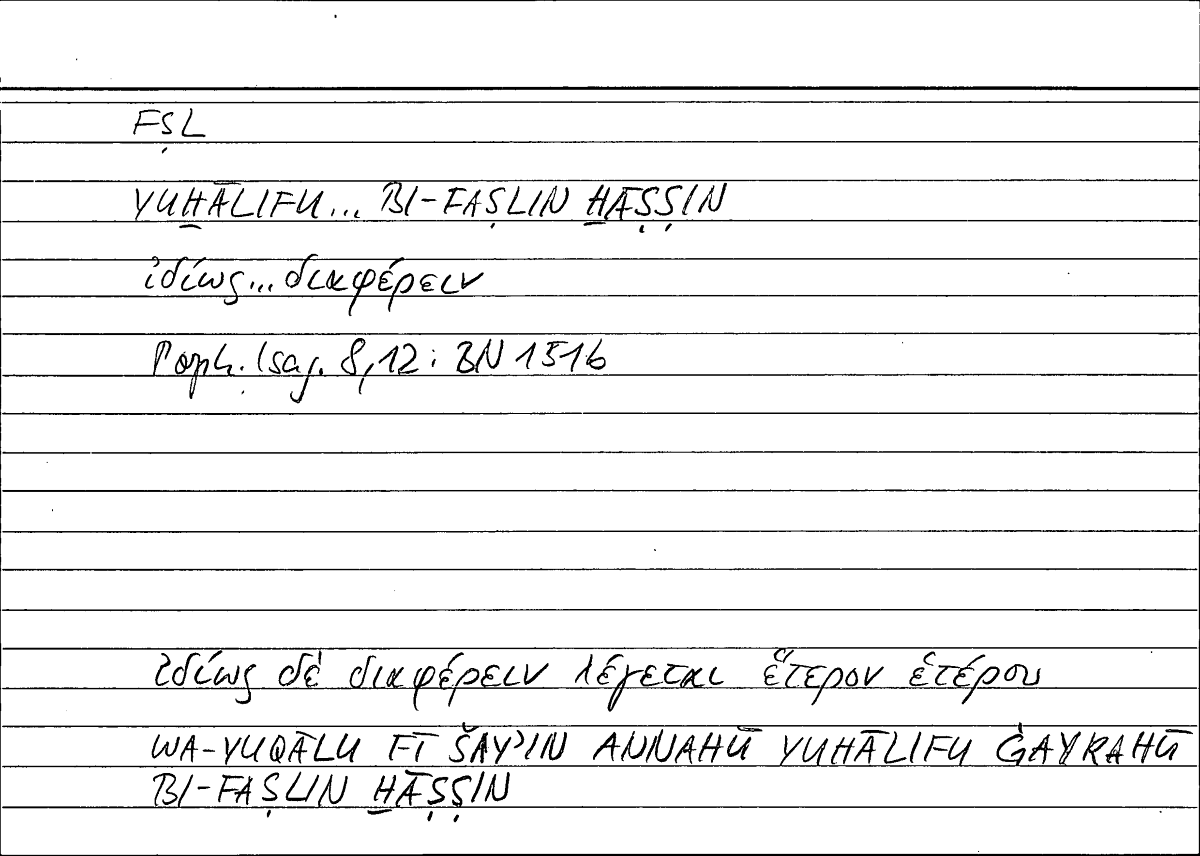 FṢL
YUḪĀLIFU... BI-FAṢLIN ḪĀṢṢIN
ἰδίως... διαφέρειν
Porph. Isag. 8,12 : BN 151b
ἰδίως δὲ διαφέρειν λέγεται ἕτερον ἑτέρου
WA-YUQĀLU FĪ ŠAY'IN ANNAHŪ YUHĀLIFU ĠAYRAHŪ
BI-FAṢLIN ḪĀṢṢIN